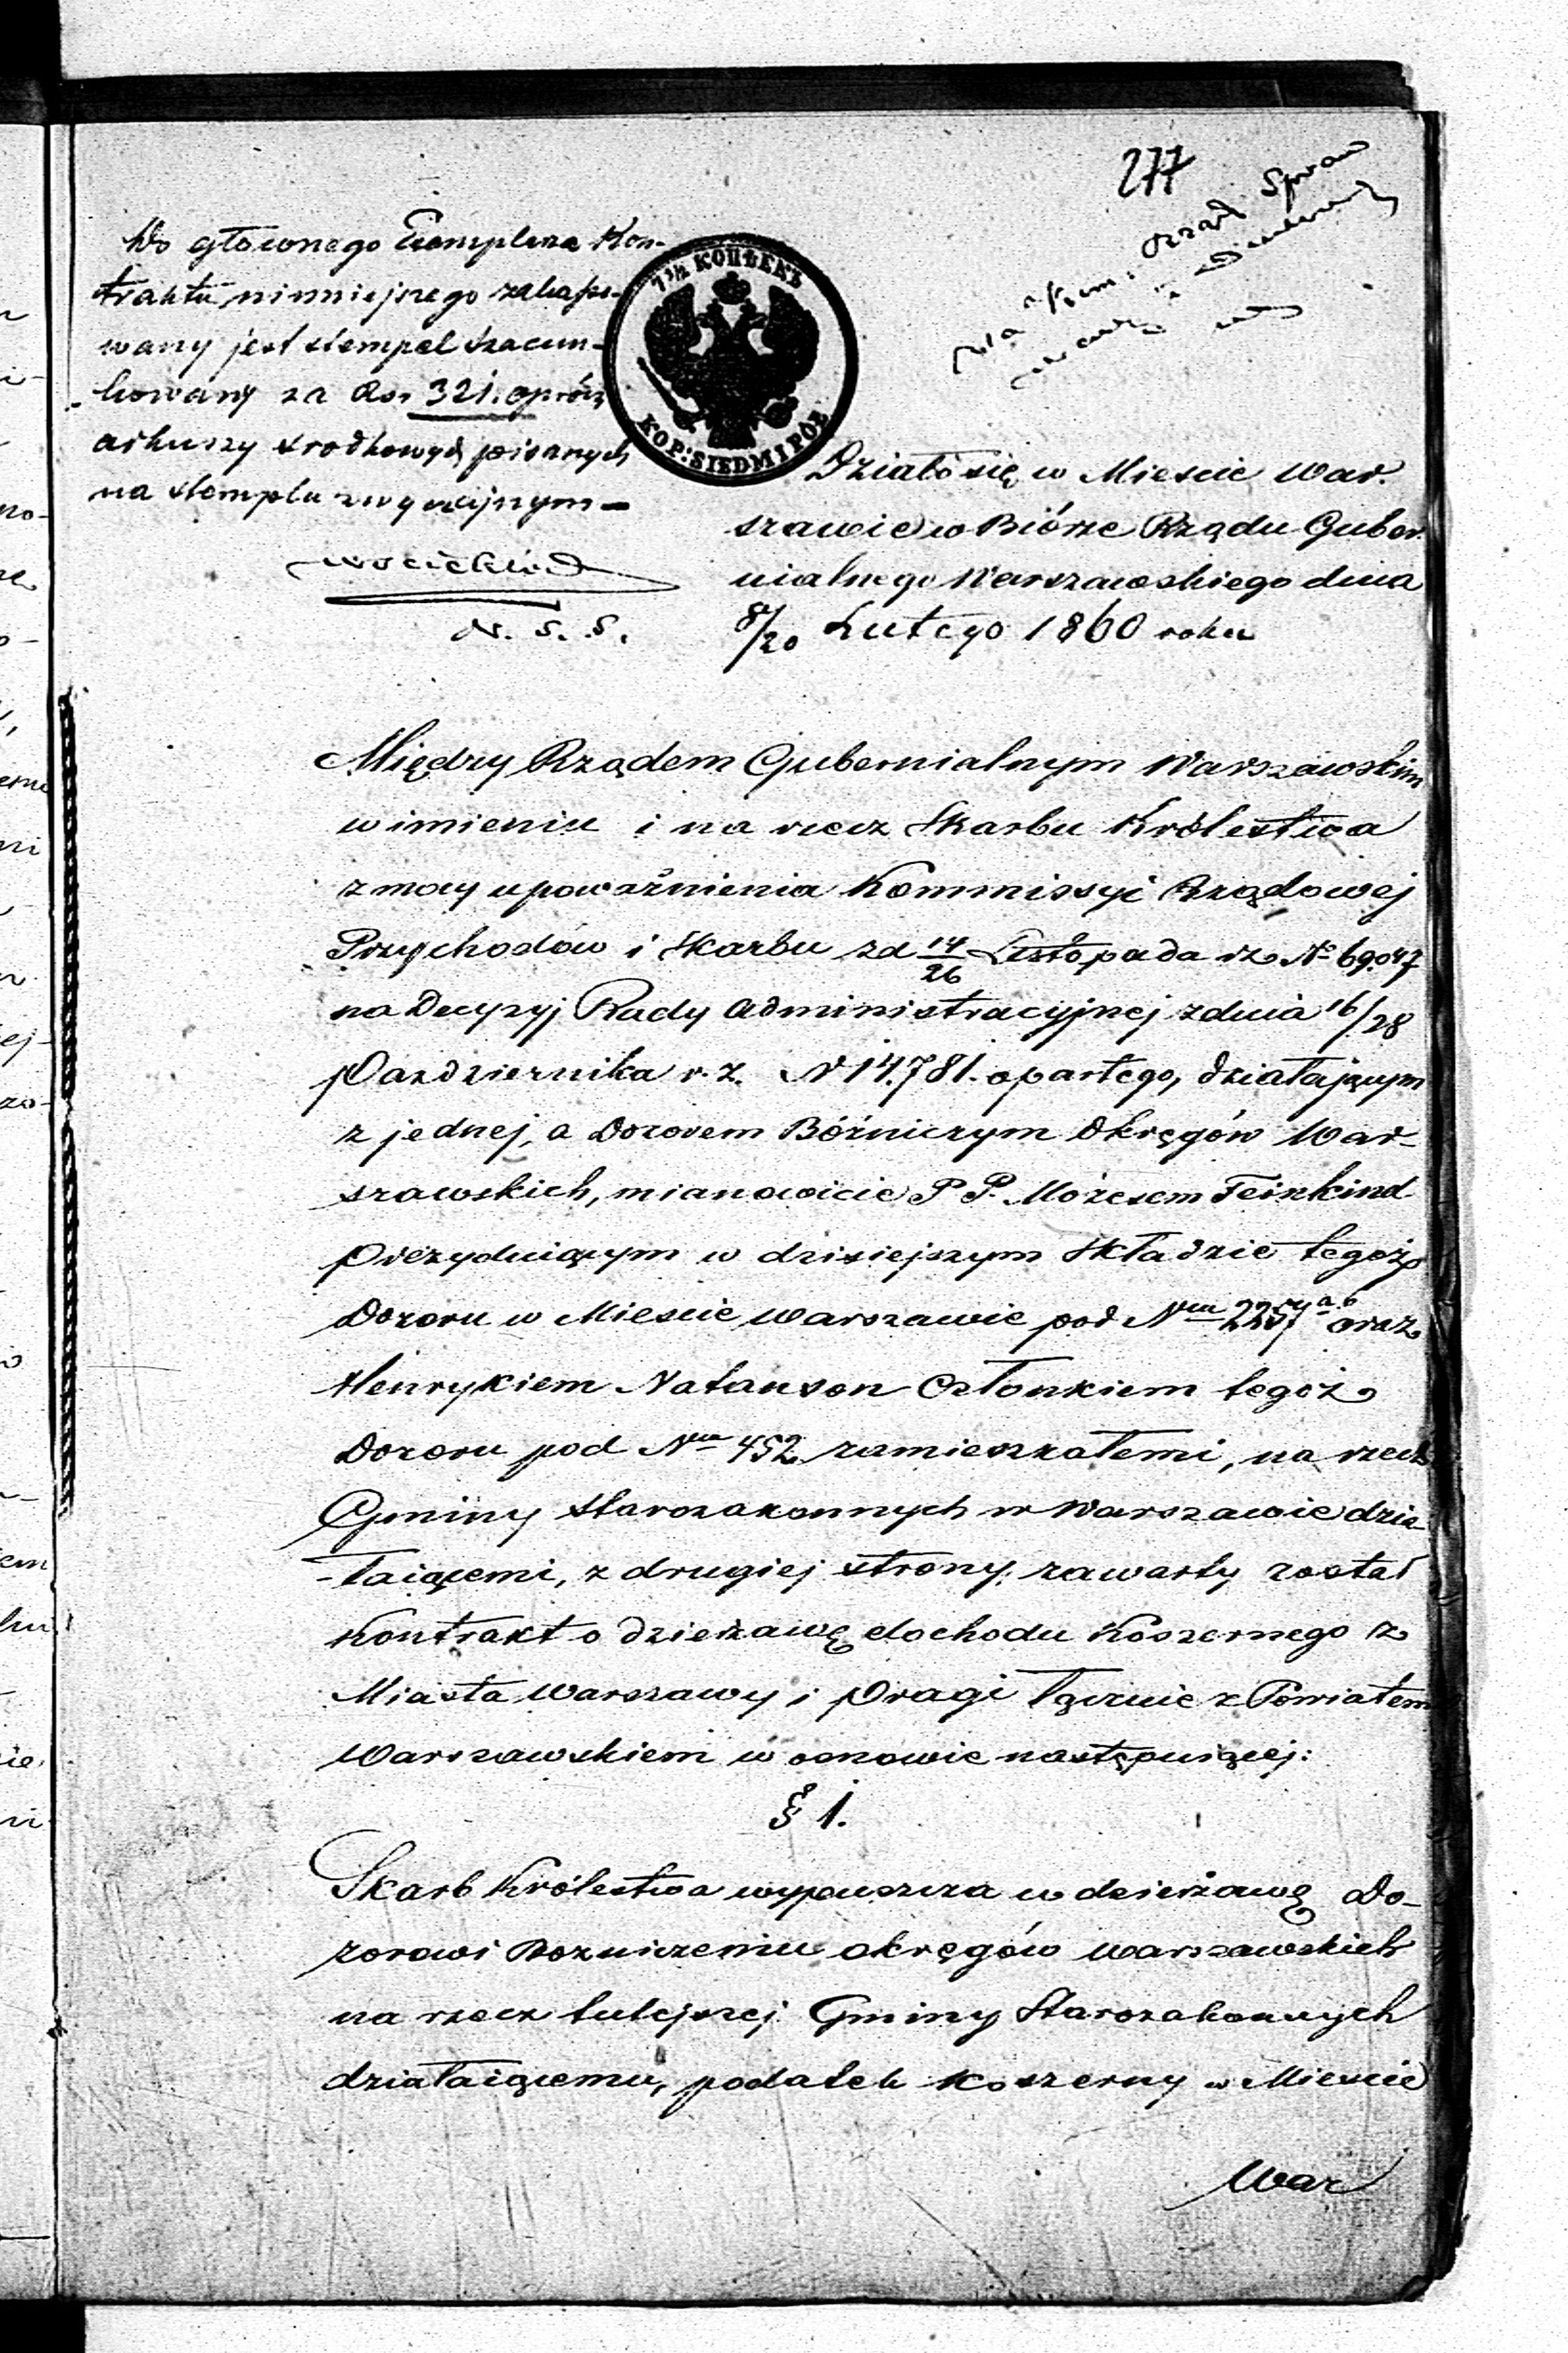 277
Do głównego Exemplarza Kon-
traktu niniejszego zakaso-
wany jest stempel szacun-
kowany za Rsr 321. oprócz
arkuszy srodkowych pisanych
na stemplu zwyczajnym –
N. S. S.
7½ КОПѢЕКЪ
KOP: SIEDM I PÓŁ
Rząd Spraw
Działo się w Miescie War-
szawie w Biórze Rządu Guber-
nialnego Warszawskiego dnia
8/20 Lutego 1860 roku
Między Rządem Gubernialnym Warszawskim
w imieniu i na rzecz Skarbu Królestwa
z mocy upoważnienia Kommissyi Rządowej
Przychodów i Skarbu z d 14/26 Listopada rz. No 69047
na Decyzyj Rady Administracyjnej z dnia 16/28
Pazdziernika r. z. N 14.781. opartego, działającym
z jednej, a Dozorem Bóźniczym Okręgów War-
szawskich, mianowicie P P. Mozesem Feinkind
Prezyduiącym w dzisiejszym Składzie tegoż
Dozoru w Miescie Warszawie pod Nm 2257 a.b oraz
Henrykiem Natanson Członkiem tegoż
Dozoru pod Nm 452 zamieszkałemi, na rzecz
Gminy Starozakonnych w Warszawie dzia-
-łaiącemi, z drugiej strony, zawarty został
Kontrakt o dzierżawę dochodu Koszernego z
Miasta Warszawy i Pragi łącznie z Powiatem
Warszawskiem w osnowie następuiącej:
§ 1.
Skarb Królestwa wypuszcza w dzierżawę Do-
zorowi Bozniczemu okręgów Warszawskich
na rzecz tutejszej Gminy Starozakonnych
działaiącemu, podatek Koszerny w Miescie
War